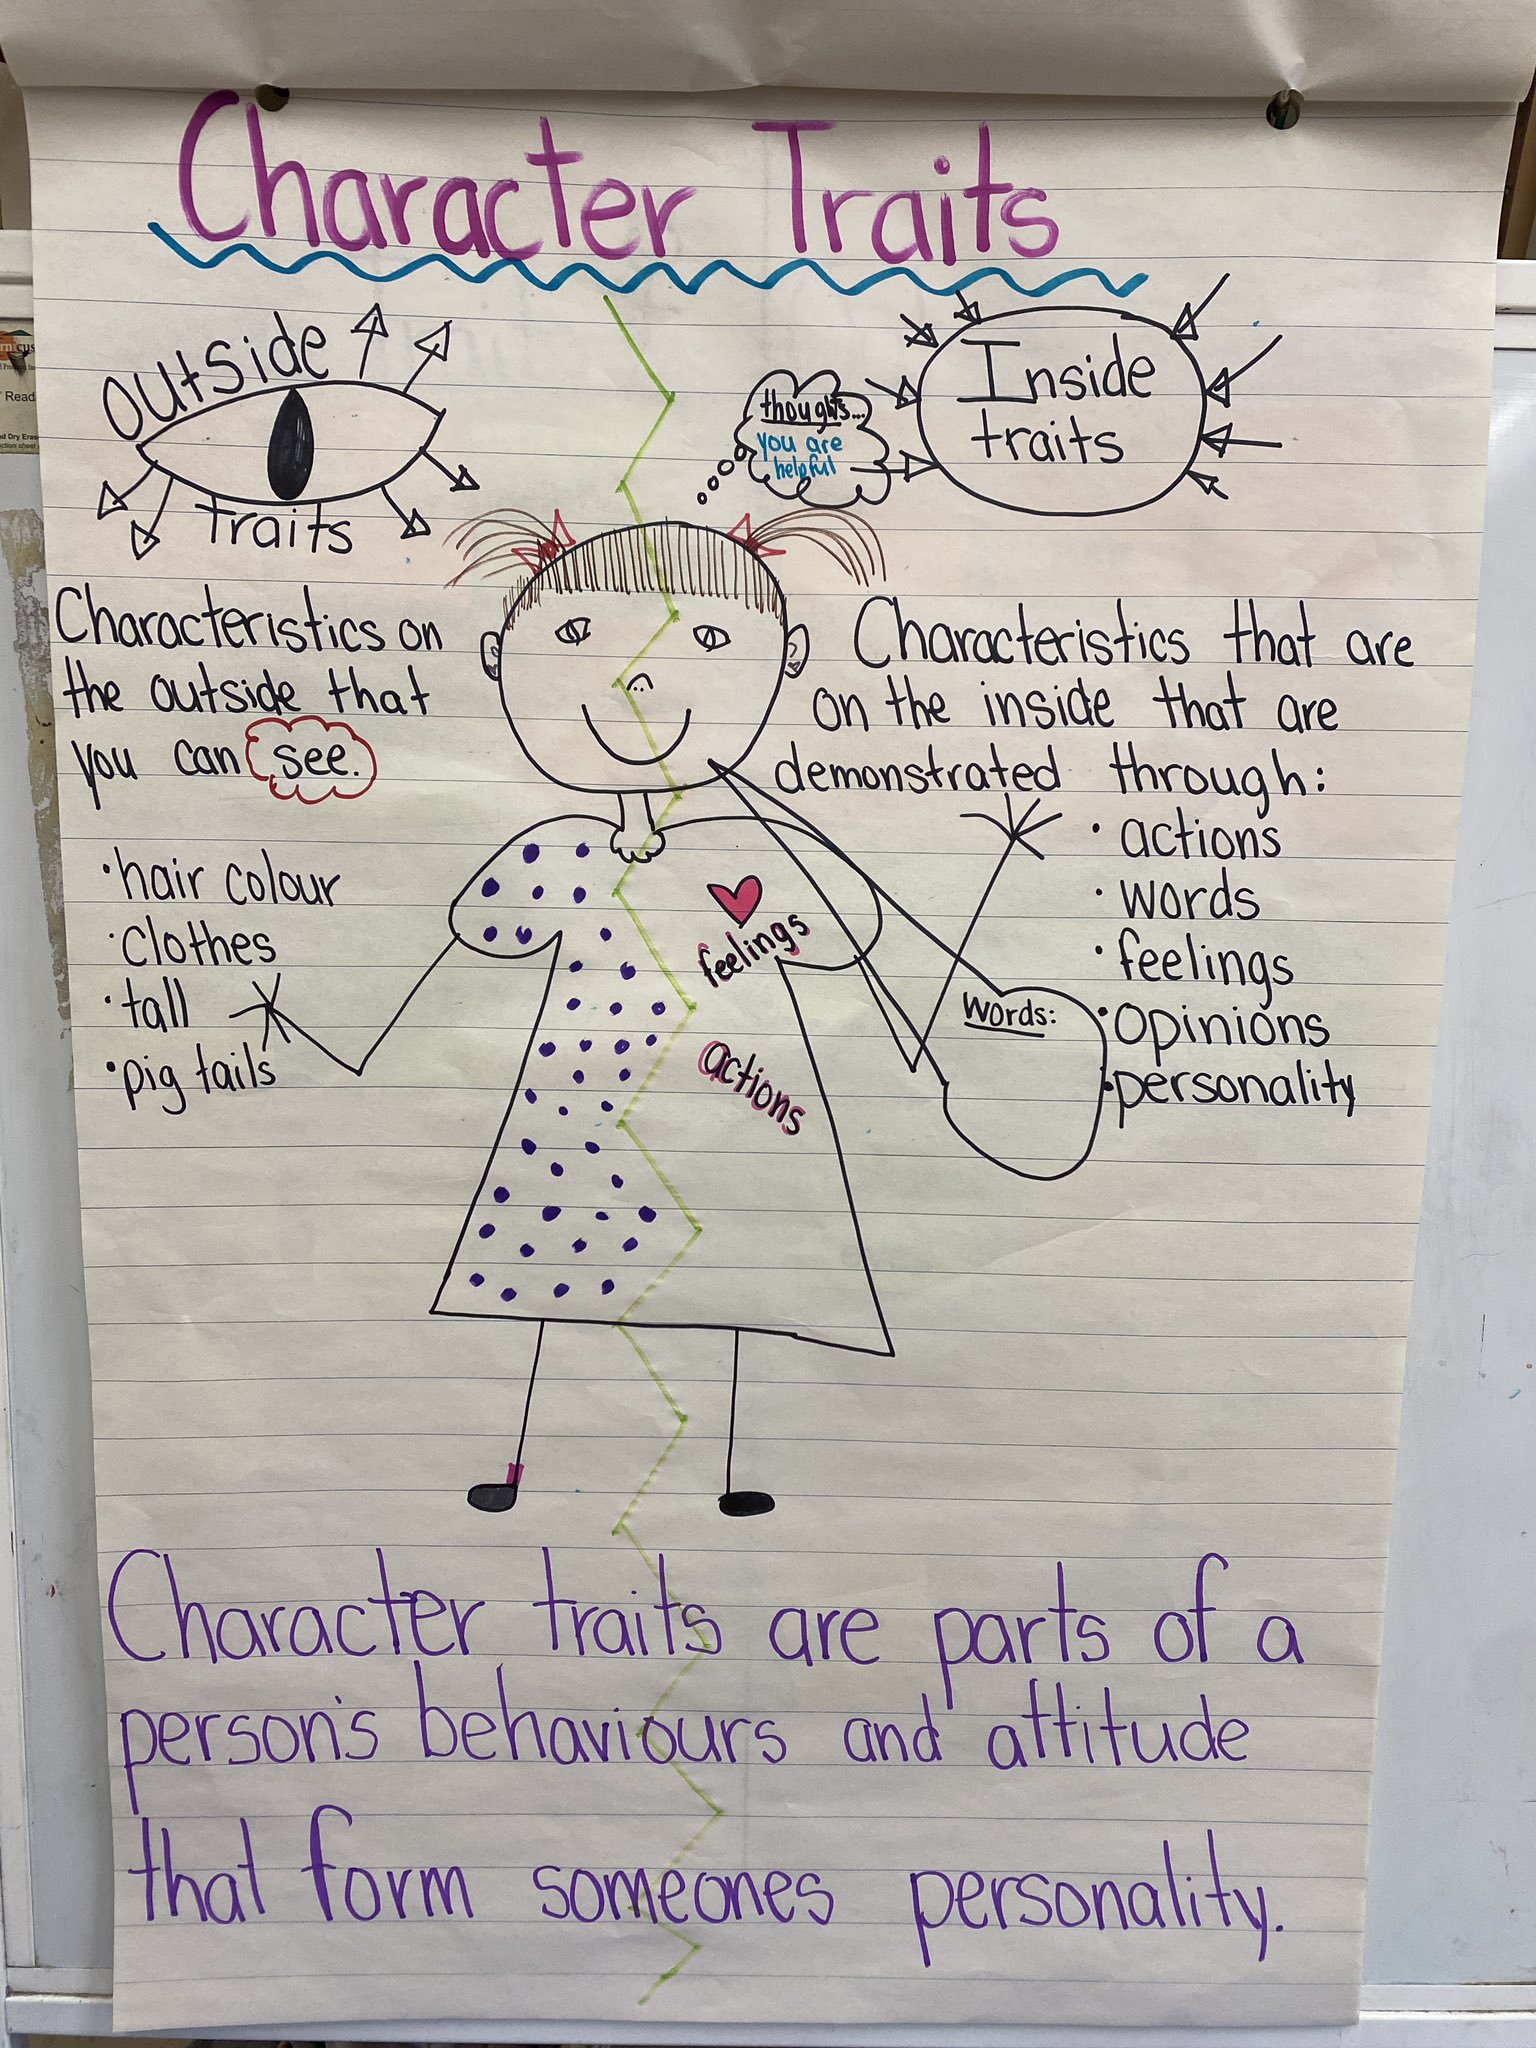 Character Traits
outside
traits
Characteristics on
the outside that
you can see.
• hair colour
• clothes
• tall
• pig tails
thoughts...
you are
helpful
Inside
traits
Characteristics that are
on the inside that are
demonstrated through:
• actions
• words
• feelings
• opinions
• personality
feelings
actions
Words:
Character traits are parts of a
person's behaviours and attitude
that form someones personality.
Read